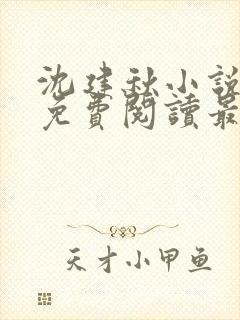 沈建秋小說
免費閱讀最
天才小甲鱼